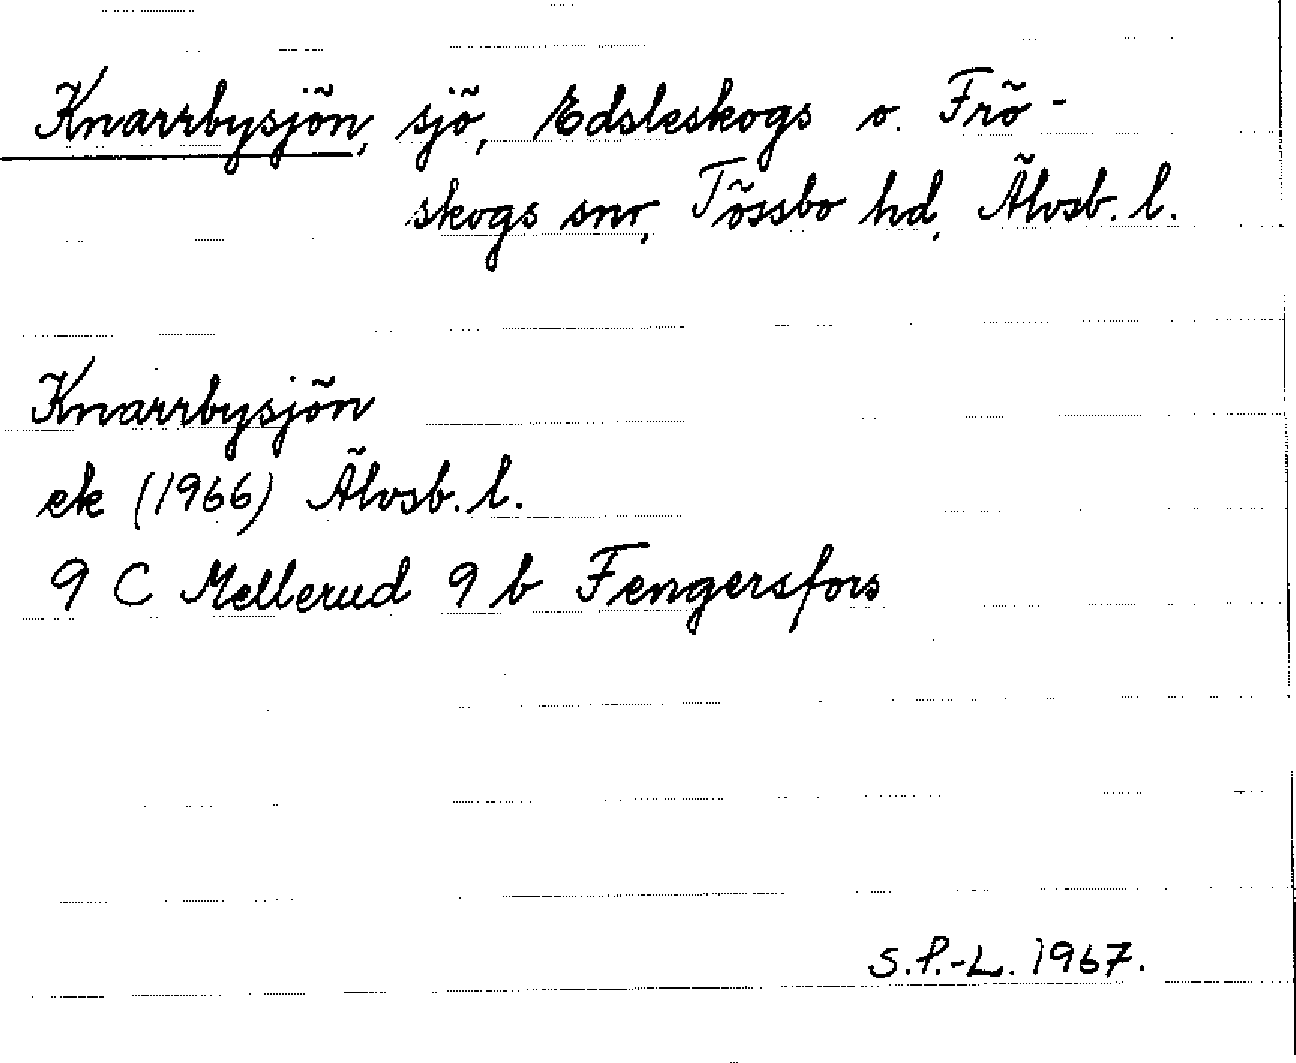 Knarrbysjön, sjö, Edsleskogs o. Frö-
skogs snr, Tössbo hd, Älvsb. l.
Knarrbysjön
ek (1966) Älvsb. l.
9 C Mellerud 9 b Fengersfors
S.P.-L. 1967.